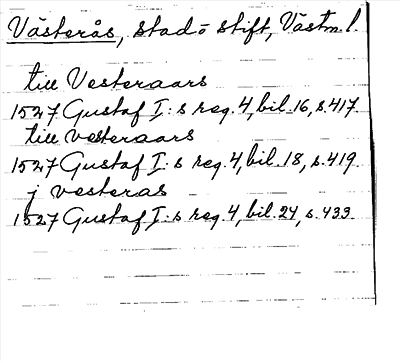 Västerås, stad o stift, Västm. l.
till Vesteraars
1527 Gustaf I:s reg. 4, bil. 16, s. 417.
till vesteraars
1527 Gustaf I:s reg. 4, bil. 18, s. 419
j vesteras
1527 Gustaf I:s reg. 4, bil. 24, s. 433